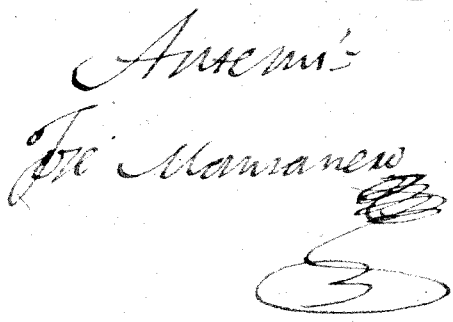 Antemi-
José Mansanero